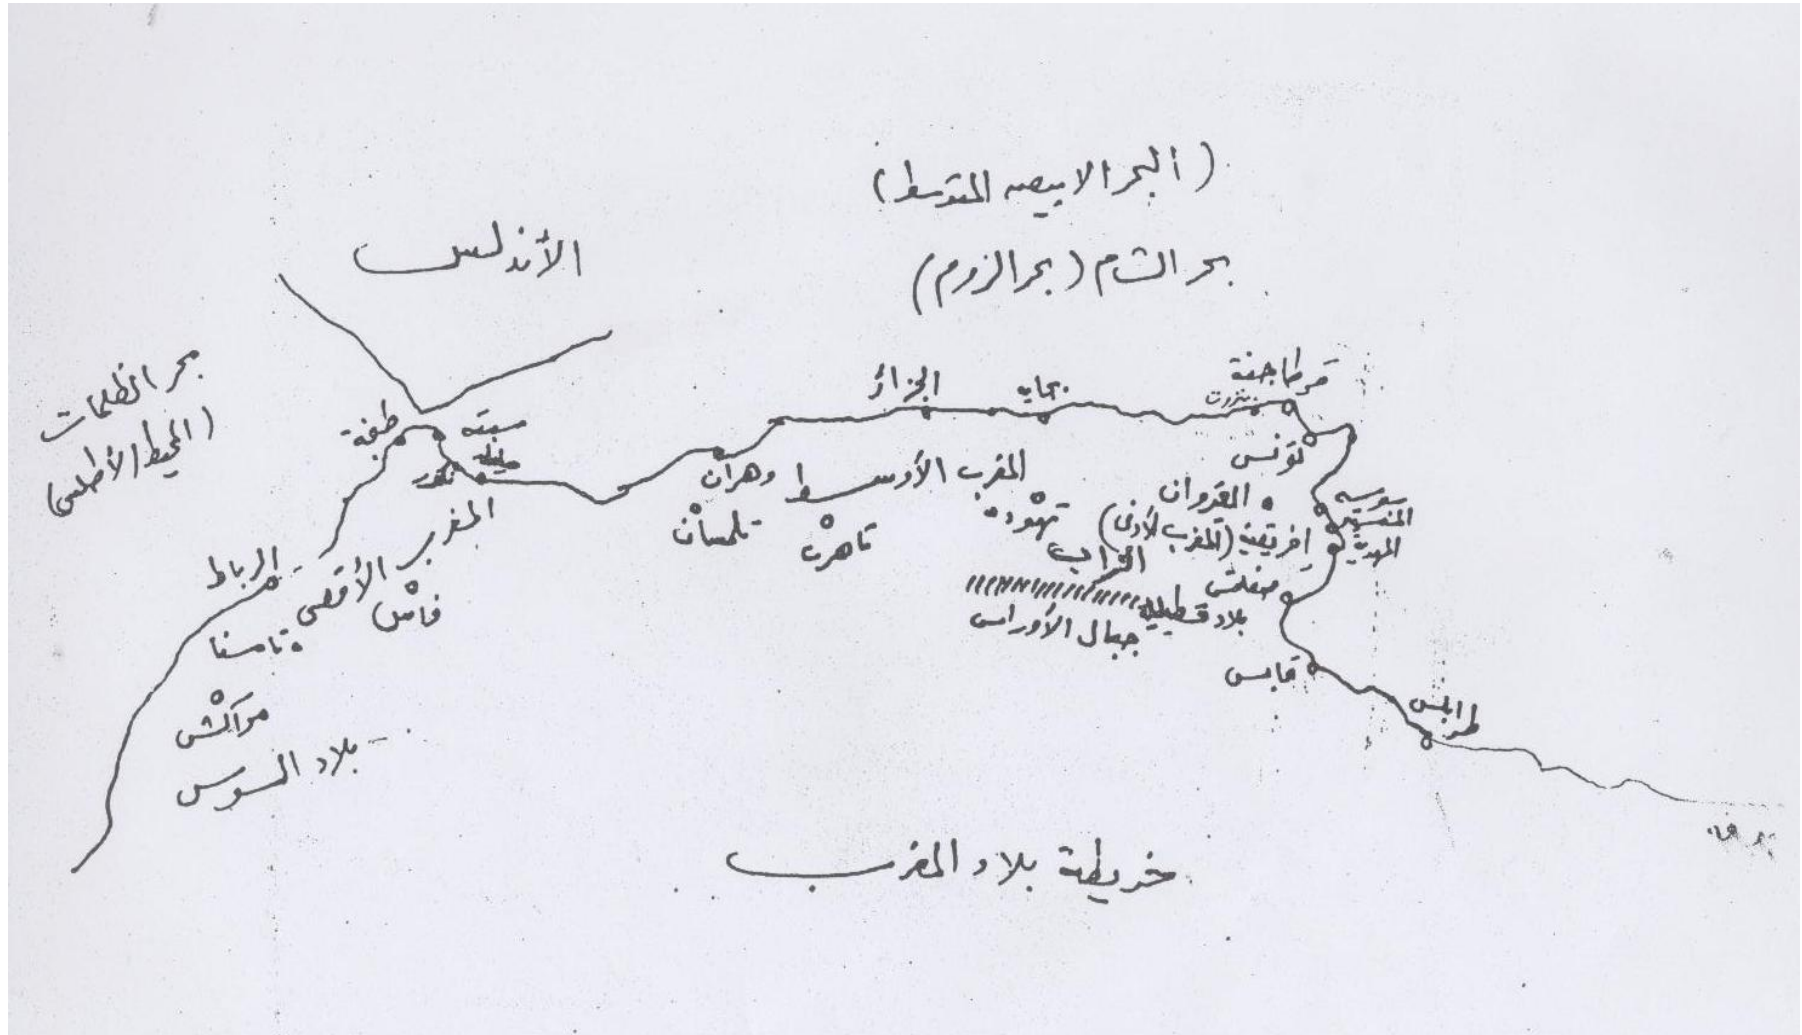 (البحر الابيض المتوسط)
بحر الشام (بحر الروم)
الأندلس
بحر الظلمات
(المحيط الأطلسي)
طنجة
سبته
مليلة
نكور
الرباط
المغرب الأقصى
فاس
تامسنا
مراكش
بلاد السوس
وهران
تلمسان
المغرب الأوسط
تاهرت
الجزائر
بجايه
تهوده
الزاب
جبال الأوراس
بلاد قسطيلية
قرطاجنة
بنزرت
تونس
القيروان
إفريقية (المغرب الأدنى)
سوسه
المنستير
المهدية
صفاقس
قابس
طرابلس
خريطة بلاد المغرب